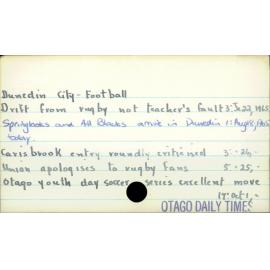 Dunedin City - Football
Drift from rugby not teacher's fault 3: Je 22, 1965
Springboks and All Blacks arrive in Dunedin 1: Aug 1965
today.
Carisbrook entry roundly criticised 3 - 24, -
Union apologises to rugby fans 5 - 25, -
Otago youth day soccer series excellent move
17: Oct 1, -
OTAGO DAILY TIMES